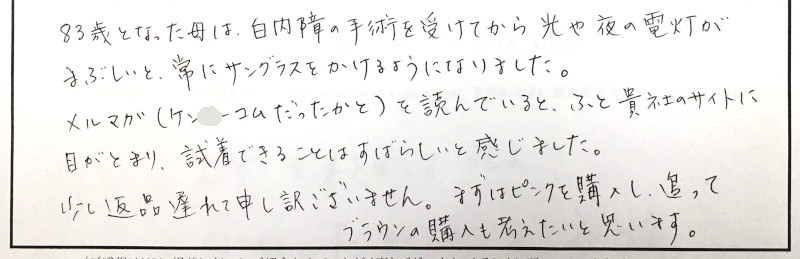 83歳となった母は、白内障の手術を受けてから光や夜の電灯が
まぶしいと、常にサングラスをかけるようになりました。
メルマガ(ケン ーコムだったかと)を読んでいると、ふと貴社のサイトに
目がとまり、試着できることはすばらしいと感じました。
返品遅れて申し訳ございません。まずはピンクを購入し、追って
ブラウンの購入も考えたいと思います。